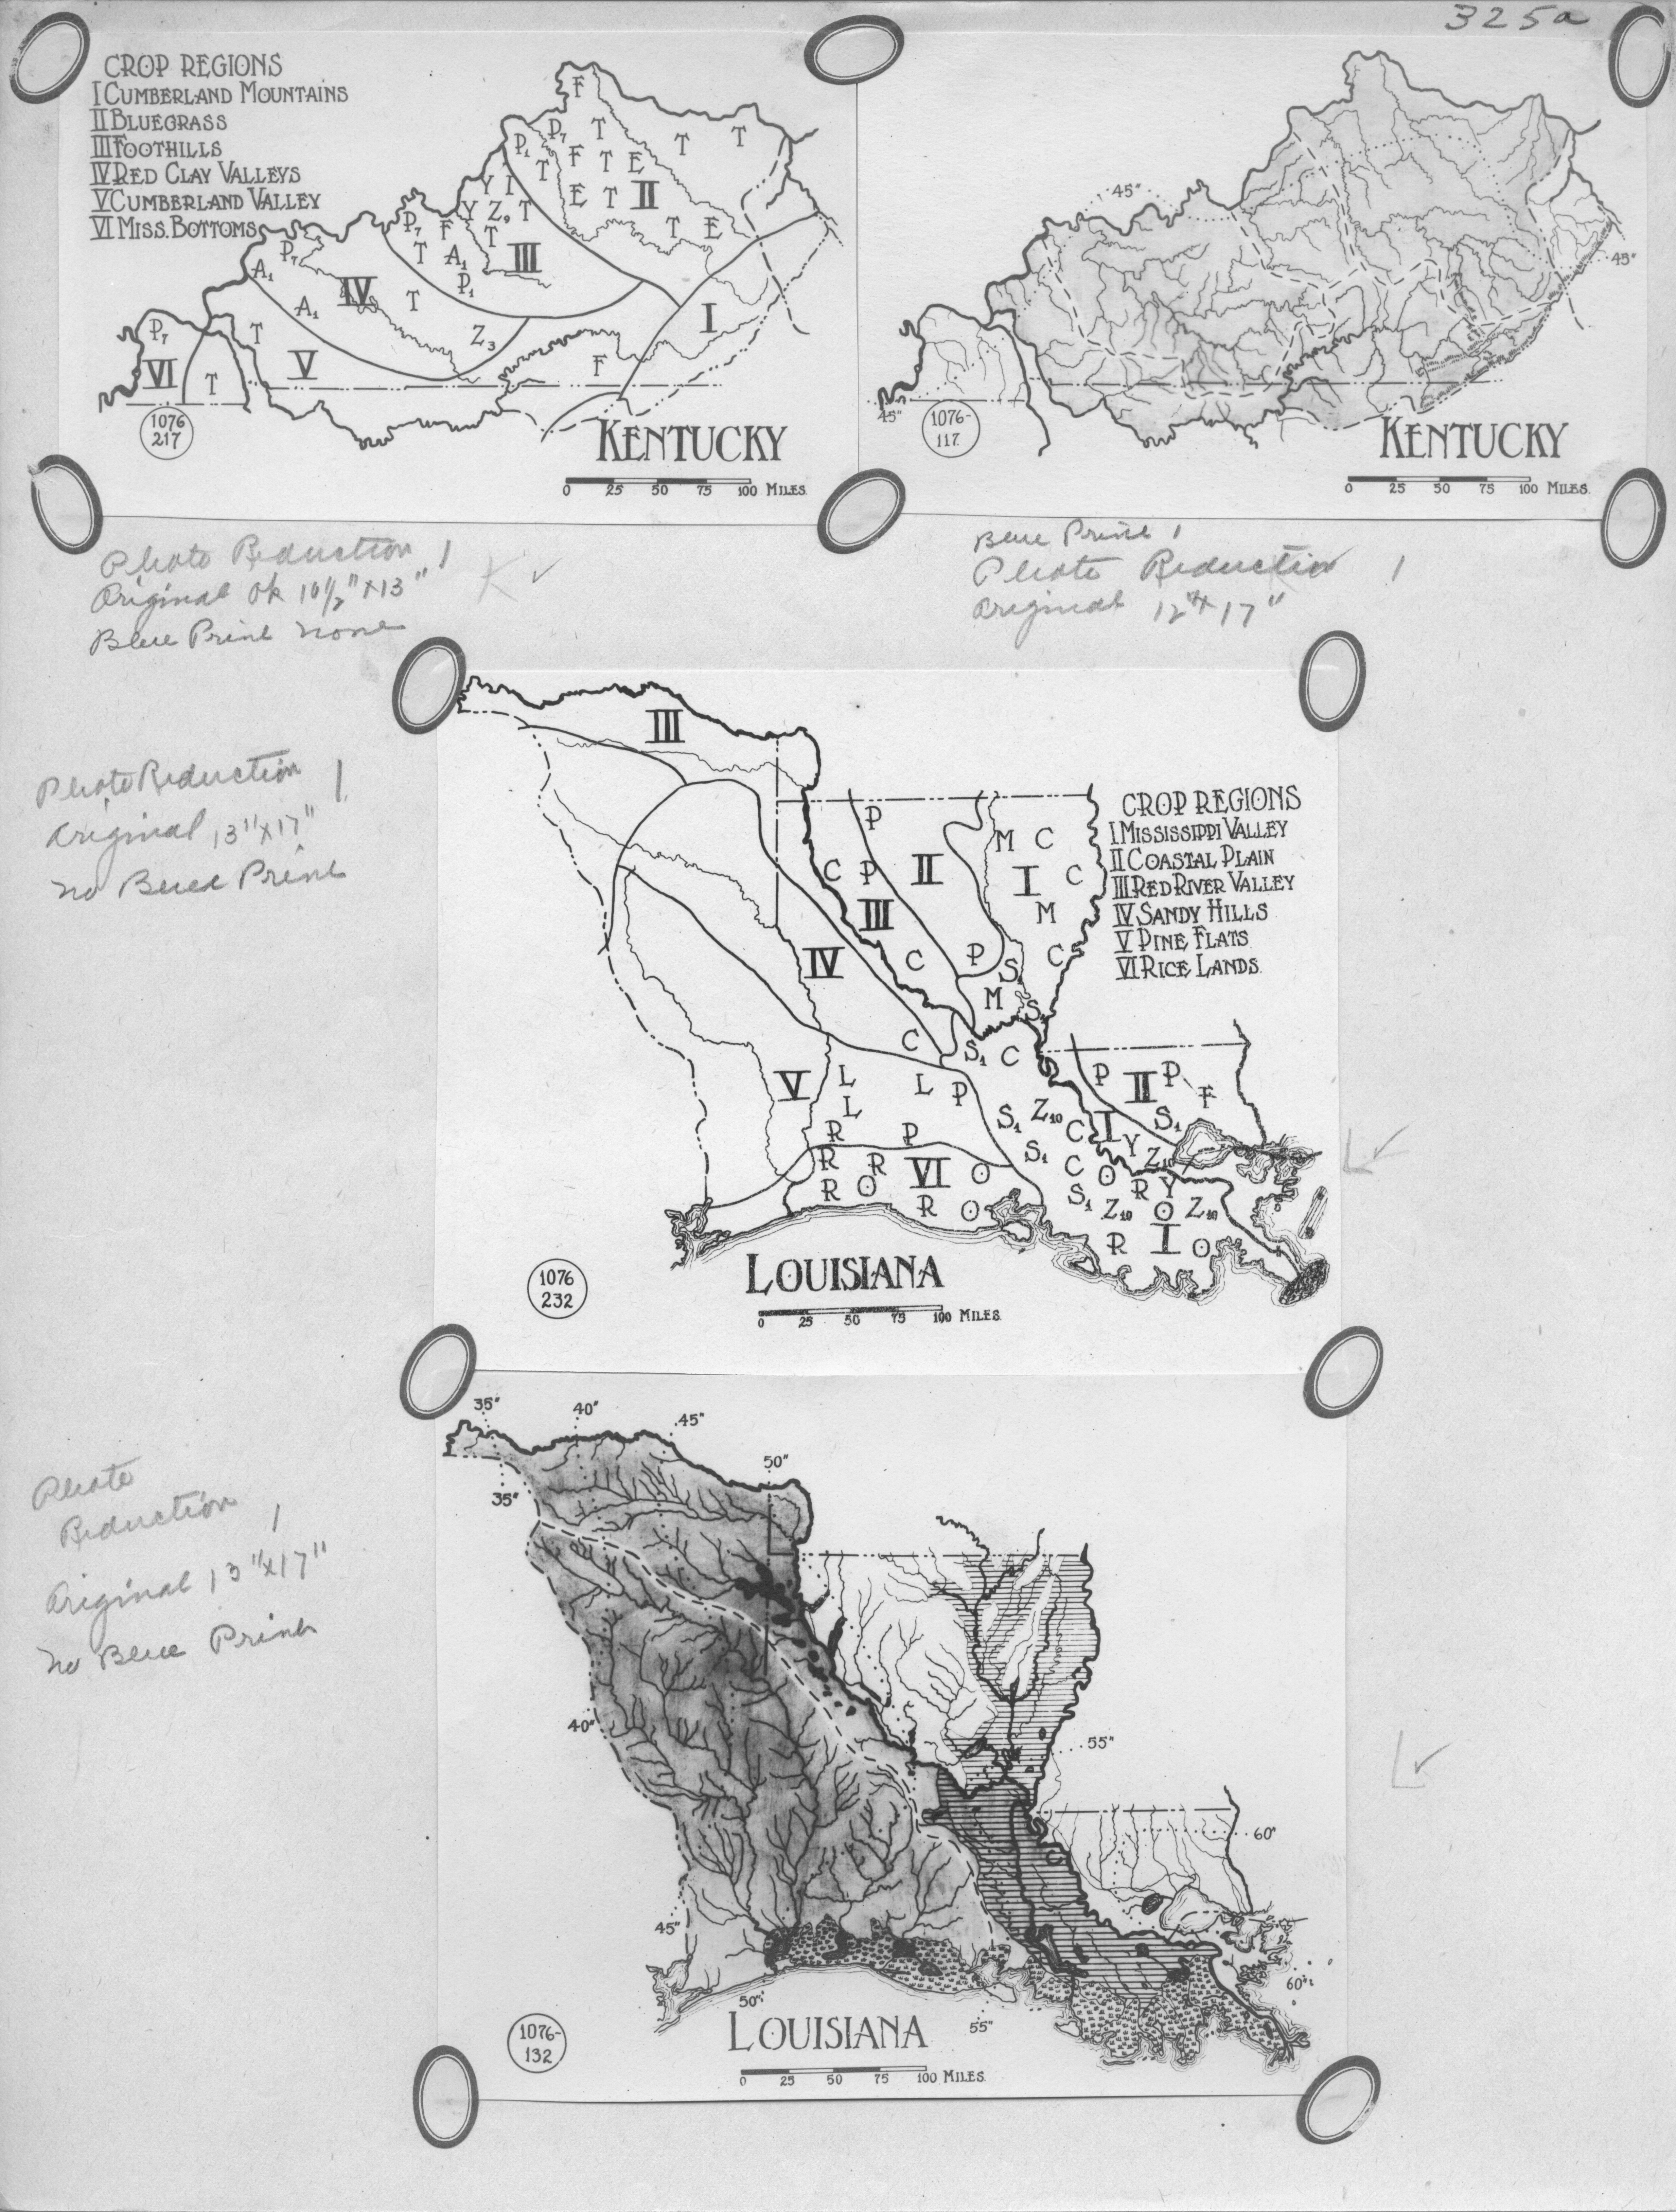 325a
CROP REGIONS
I CUMBERLAND MOUNTAINS
II BLUEGRASS
III FOOTHILLS
IV RED CLAY VALLEYS
V CUMBERLAND VALLEY
VI MISS. BOTTOMS
F
P7 T T T
P1 F T E
T E T II
Y T
Y Z9 T T E
P7 F T
T A1 III
P1
P7
A1 IV T
A1
P7 T Z3 I
VI T V F
1076
217
KENTUCKY
0 25 50 75 100 MILES
45"
45"
45"
1076-
117
KENTUCKY
0 25 50 75 100 MILES
Photo Reduction 1
Original ok 10½" x 13"
Blue Print none
Blue Print 1
Photo Reduction 1
Original 12" x 17"
Photo Reduction 1
Original 13" x 17"
No Blue Print
III
CROP REGIONS
I MISSISSIPPI VALLEY
II COASTAL PLAIN
III RED RIVER VALLEY
IV SANDY HILLS
V PINE FLATS
VI RICE LANDS
P M C
C P II I C
III M
IV C P S1 C
M S1
C S1 C
P II P F
V L L P
L S1 Z10 C I S1
R P S1 Y
R R VI O C O Z10
R O S1 R Y
R O Z10 O Z10
R I O
1076
232
LOUISIANA
0 25 50 75 100 MILES
Photo
Reduction 1
Original 13" x 17"
No Blue Print
35" 40" 45"
50"
35"
40"
55"
60"
45"
60"
50"
55"
1076-
132
LOUISIANA
0 25 50 75 100 MILES